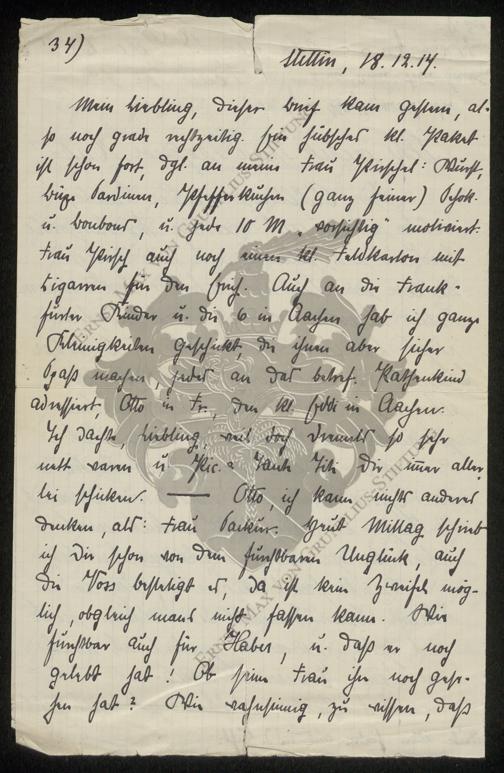 34)
Stettin, 18.12.14.
Mein Liebling, dieser Brief kam gestern, al-
so noch grade rechtzeitig. Ein hübsches kl. Paket
ist schon fort, dgl. an meine Frau Pirschel: Wurst,
Sardinen, Pfefferkuchen (ganz feiner) Schok.
u. Bonbons, u. jede 10 M „vorsichtig" motiviert.
Frau Pirsch auch noch einen kl. Feldkarton mit
Cigarren für den Erich. Auch an die Frank-
furter Kinder u. die 6 in Aachen hab ich ganze
Kleinigkeiten geschickt, die ihnen aber sicher
Spaß machen, jedes an das betref. Pathenkind
adressiert. Otto in Fr., den kl. in Aachen.
Ich dachte, Liebling, weil doch so sehr
nett waren u. Tante Titi Dir immer aller
lei schicken. — Otto, ich kann nichts anderes
denken, als: Frau Sackur. Heut Mittag schrieb
ich Dir schon von dem furchtbaren Unglück, auch
die Voss bestätigt es, da ist kein Zweifel mög-
lich, obgleich mans nicht fassen kann. Wie
furchtbar auch für Haber, u. daß er noch
gelebt hat! Ob seine Frau ihn noch gese-
hen hat? Wie wahnsinnig, zu wissen, daß
ERNST MAX VON GRUNELIUS-STIFTUNG
ERNST MAX VON GRUNELIUS-STIFTUNG